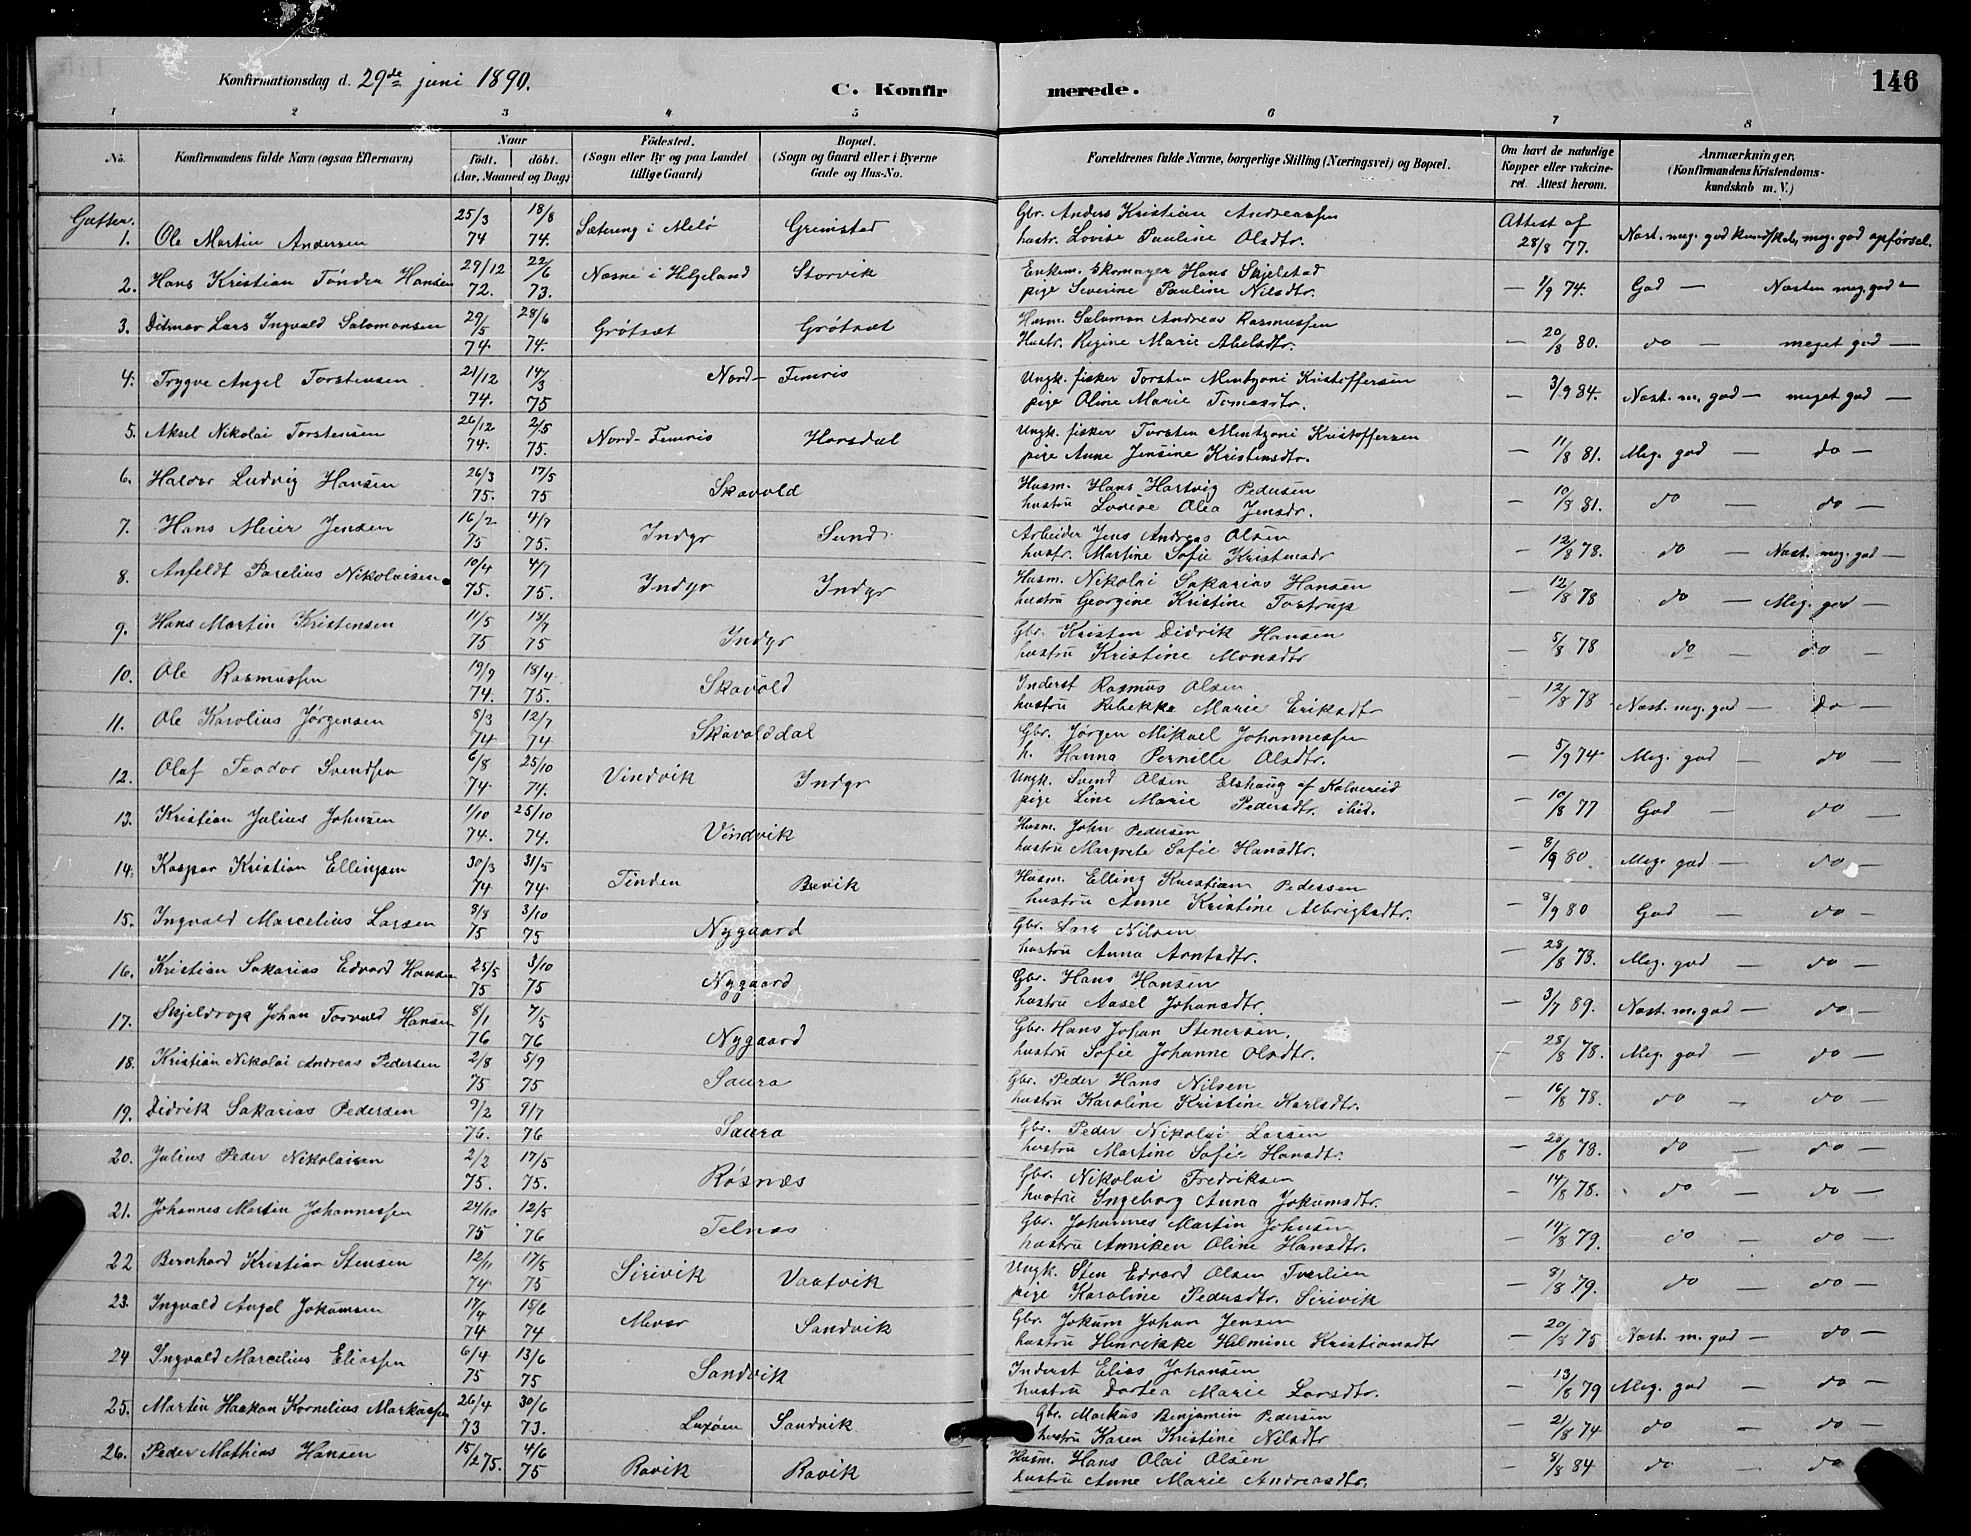 Konfirmationsdag d. 29de juni 1890.
C. Konfirmerede.
146
1 2 3 4 5 6 7 8
No. Konfirmandens fulde Navn (ogsaa Efternavn) Naar födt. döbt. (Aar, Maaned og Dag) Födested. (Sogn eller By og paa Landet tillige Gaard) Bopæl. (Sogn og Gaard eller i Byerne Gade og Hus-No. Forældrenes fulde Navne, borgerlige Stilling (Næringsvei) og Bopæl. Om havt de naturlige Kopper eller vakcineret. Attest herom. Anmærkninger. (Konfirmandens Kristendomskundskab m. V.)
Gutter.
1. Ole Martin Andersen 25/3 74 18/8 74. Sætereng i Melö Grimstad Gbr. Anders Kristian Andreassen
hustr. Lovise Pauline Olsdtr. Attest af 28/8 77. Næst. meg. god kundskab, meg. god opförsel.
2. Hans Kristian Tönder Hansen 29/12 72. 22/6 73. Nesne i Helgeland Storvik Enkem. Skomager Hans Skjelstad
pige Severine Pauline Nilsdtr. — 1/9 74. God — Næsten meg. god —
3. Ditmar Lars Ingvald Salomonsen 29/5 74. 28/6 74. Grötsæt Grötsæt Husm. Salomon Andreas Rasmussen
Hustr. Regine Marie Abelsdtr. — 20/8 80. do — meget god —
4. Trygve Angel Torstensen 21/12 74. 14/3 75 Nord-Femris Ungk. fisker Torsten Mentzoni Kristoffersen
pige Oline Marie Tomasdtr. — 3/9 84. Næst. m. god — meget god —
5. Aksel Nikolai Torstensen 26/12 74. 2/5 75. Nord-Femris Horsdal Ungk. fisker Torsten Mentzoni Kristoffersen
pige Anne Jensine Kristensdtr. — 11/8 81. Meg. god — do —
6. Haldor Ludvig Hansen 26/3 75. 17/5 75 Skavold Husm. Hans Hartvig Pedersen
hustru Lovise Olea Jensdr. — 10/8 81. do do —
7. Hans Meier Jensen 16/2 75 4/7 75. Indyr Sund Arbeider Jens Andreas Olsen
hustr. Martine Sofie Kristensdr — 12/8 78. do — Næst. meg. god —
8. Anfeldt Parelius Nikolaisen 10/4 75. 4/7 75. Indyr Indyr Husm. Nikolai Sakarias Hansen
hustru Georgine Kristine Tostrup — 12/8 78 do — Meg. god —
9. Hans Martin Kristensen 11/5 75 18/7 75 Indyr Gbr. Kristen Didrik Hansen
hustru Kristine Monsdtr — 5/8 78 do — do —
10. Ole Rasmussen 19/9 74. 18/4 75. Skavold Inderst Rasmus Olsen
hustru Rebekka Marie Eriksdtr — 12/8 78 Næst. meg. god — do —
11. Ole Karolius Jörgensen 8/3 74 12/7 74 Skavolddal Gbr. Jörgen Mikael Johannessen
h. Hanna Pernille Olsdtr. — 5/9 74 Meg. god — do
12. Olaf Teodor Svendsen 6/8 74. 25/10 74. Vindvik Indyr Ungk. Svend Olsen Elshaug af Kalvereid
pige Line Marie Pedersdtr. ibid. — 10/8 77 God — do
13. Kristian Julius Johnsen 1/10 74. 25/10 74. Vindvik Husm. John Pedersen
hustru Margrete Sofie Hansdtr. — 8/9 80. Meg. god — do —
14. Kaspar Kristian Ellingsen 30/3 74 31/5 74. Tinden Buvik Husm. Elling Kristian Pedersen
hustru Anne Kristine Albrigtsdtr. — 8/9 80 God — do —
15. Ingvald Marcelius Larsen 8/8 75 3/10 75 Nygaard Gbr. Lars Nilsen
hustru Anna Arntsdtr. — 28/8 78. Meg. god — do —
16. Kristian Sakarias Edvard Hansen 25/5 75 3/10 75 Nygaard Gbr. Hans Hansen
hustru Aasel Johansdtr. — 3/7 89. Næst. m. god — do —
17. Skjeldrop Johan Torvald Hansen 8/1 76 7/5 76 Nygaard Gbr. Hans Johan Stenersen,
hustru Sofie Johanne Olsdtr. — 28/8 78. Meg. god — do —
18. Kristian Nikolai Andreas Pedersen 2/8 75 5/9 75 Saura Gbr. Peder Hans Nilsen
hustru Karoline Kristine Karlsdtr. — 16/8 78. do — do —
19. Didrik Sakarias Pedersen 9/2 76. 9/7 76 Saura Gbr. Peder Nikolai Larsen
hustru Martine Sofie Hansdtr. — 28/8 78. do — do —
20. Julius Peder Nikolaisen 2/2 75. 17/5 75. Rösnæs Gbr. Nikolai Fredriksen
hustru Ingeborg Anna Jokumsdtr. — 14/8 78. do — do —
21. Johannes Martin Johannessen 24/10 75 12/5 76 Telnæs Gbr. Johannes Martin Johnsen
hustru Anniken Oline Hansdtr. — 14/8 79. do — do —
22 Bernhard Kristian Stensen 12/11 74 17/5 75 Sirivik Vaatvik Ungk. Sten Edvard Olsen Tverlien
pige Karoline Pedersdtr. Sirivik — 8/8 79. do do —
23. Ingvald Angel Jokumsen 17/4 74 15/6 74 Mevær Sandvik Gbr. Jokum Johan Jensen
hustru Henrikke Helmine Kristiansdtr — 20/8 75 Næst. m. god — do —
24 Ingvald Marcelius Eliassen 6/4 75 13/6 75 Sandvik Inderst Elias Johansen
hustru Dortea Marie Larsdtr. — 13/8 79 Meg. god — do —
25. Martin Haakon Kornelius Markussen 26/4 73 30/6 73. Luxöen Sandvik Gbr. Markus Benjamin Pedersen
hustru Karen Kristine Nilsdtr — 21/8 74 do — do —
26. Peder Mathias Hansen 15/2 75. 4/6 75 Ravik Ravik Husm. Hans Olai Olsen
hustru Anne Marie Andreasdtr. — 8/8 84 do — do —